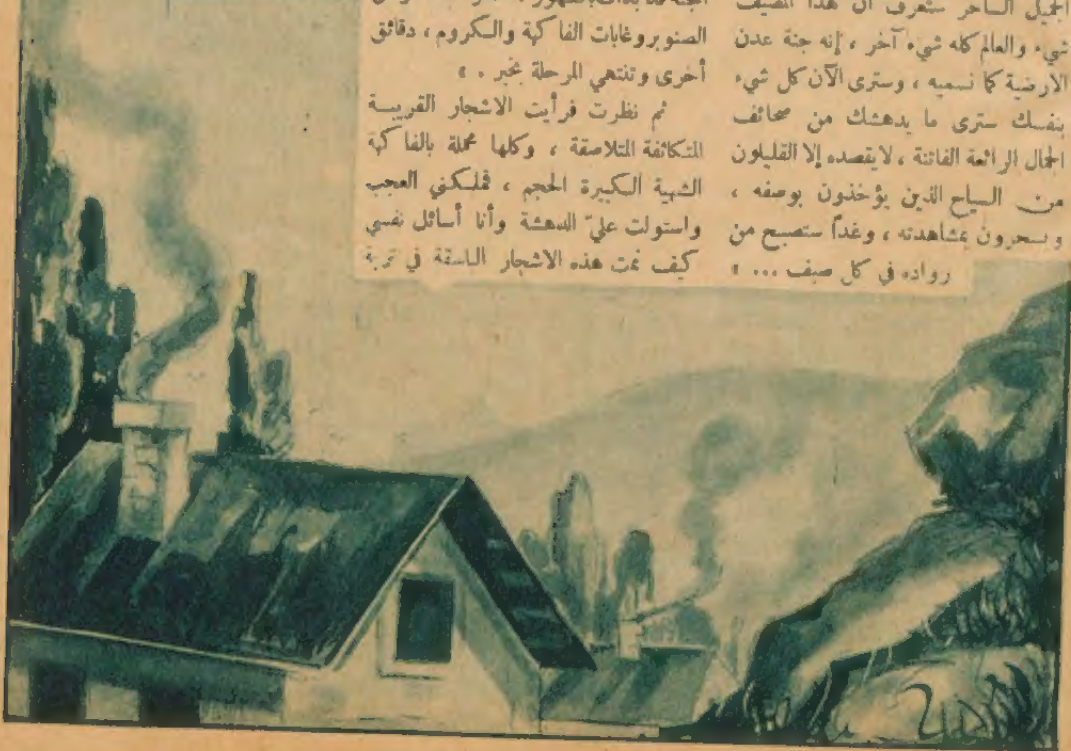 الجميل الساحر ستعرف أن هذا المصيف
شيء والعالم كله شيء آخر ، إنه جنة عدن
الارضية كما نسميه ، وسترى الآن كل شيء
بنفسك سترى ما يدهشك من صحائف
الجمال الرائعة الفاتنة ، لايقصده إلا القليلون
من السياح الذين يؤخذون بوصفه ،
ويسحرون بمشاهدته ، وغداً ستصبح من
رواده في كل صيف ... »
الصنوبر وغابات الفاكهة والكروم ، دقائق
أخرى وتنتهي المرحلة بخير . »
ثم نظرت فرأيت الاشجار القريبة
المتكاثفة المتلاصقة ، وكلها محملة بالفاكهة
الشهية الكبيرة الحجم ، فملكني العجب
واستولت عليّ الدهشة وأنا أسائل نفسي
كيف نمت هذه الاشجار الباسقة في تربة